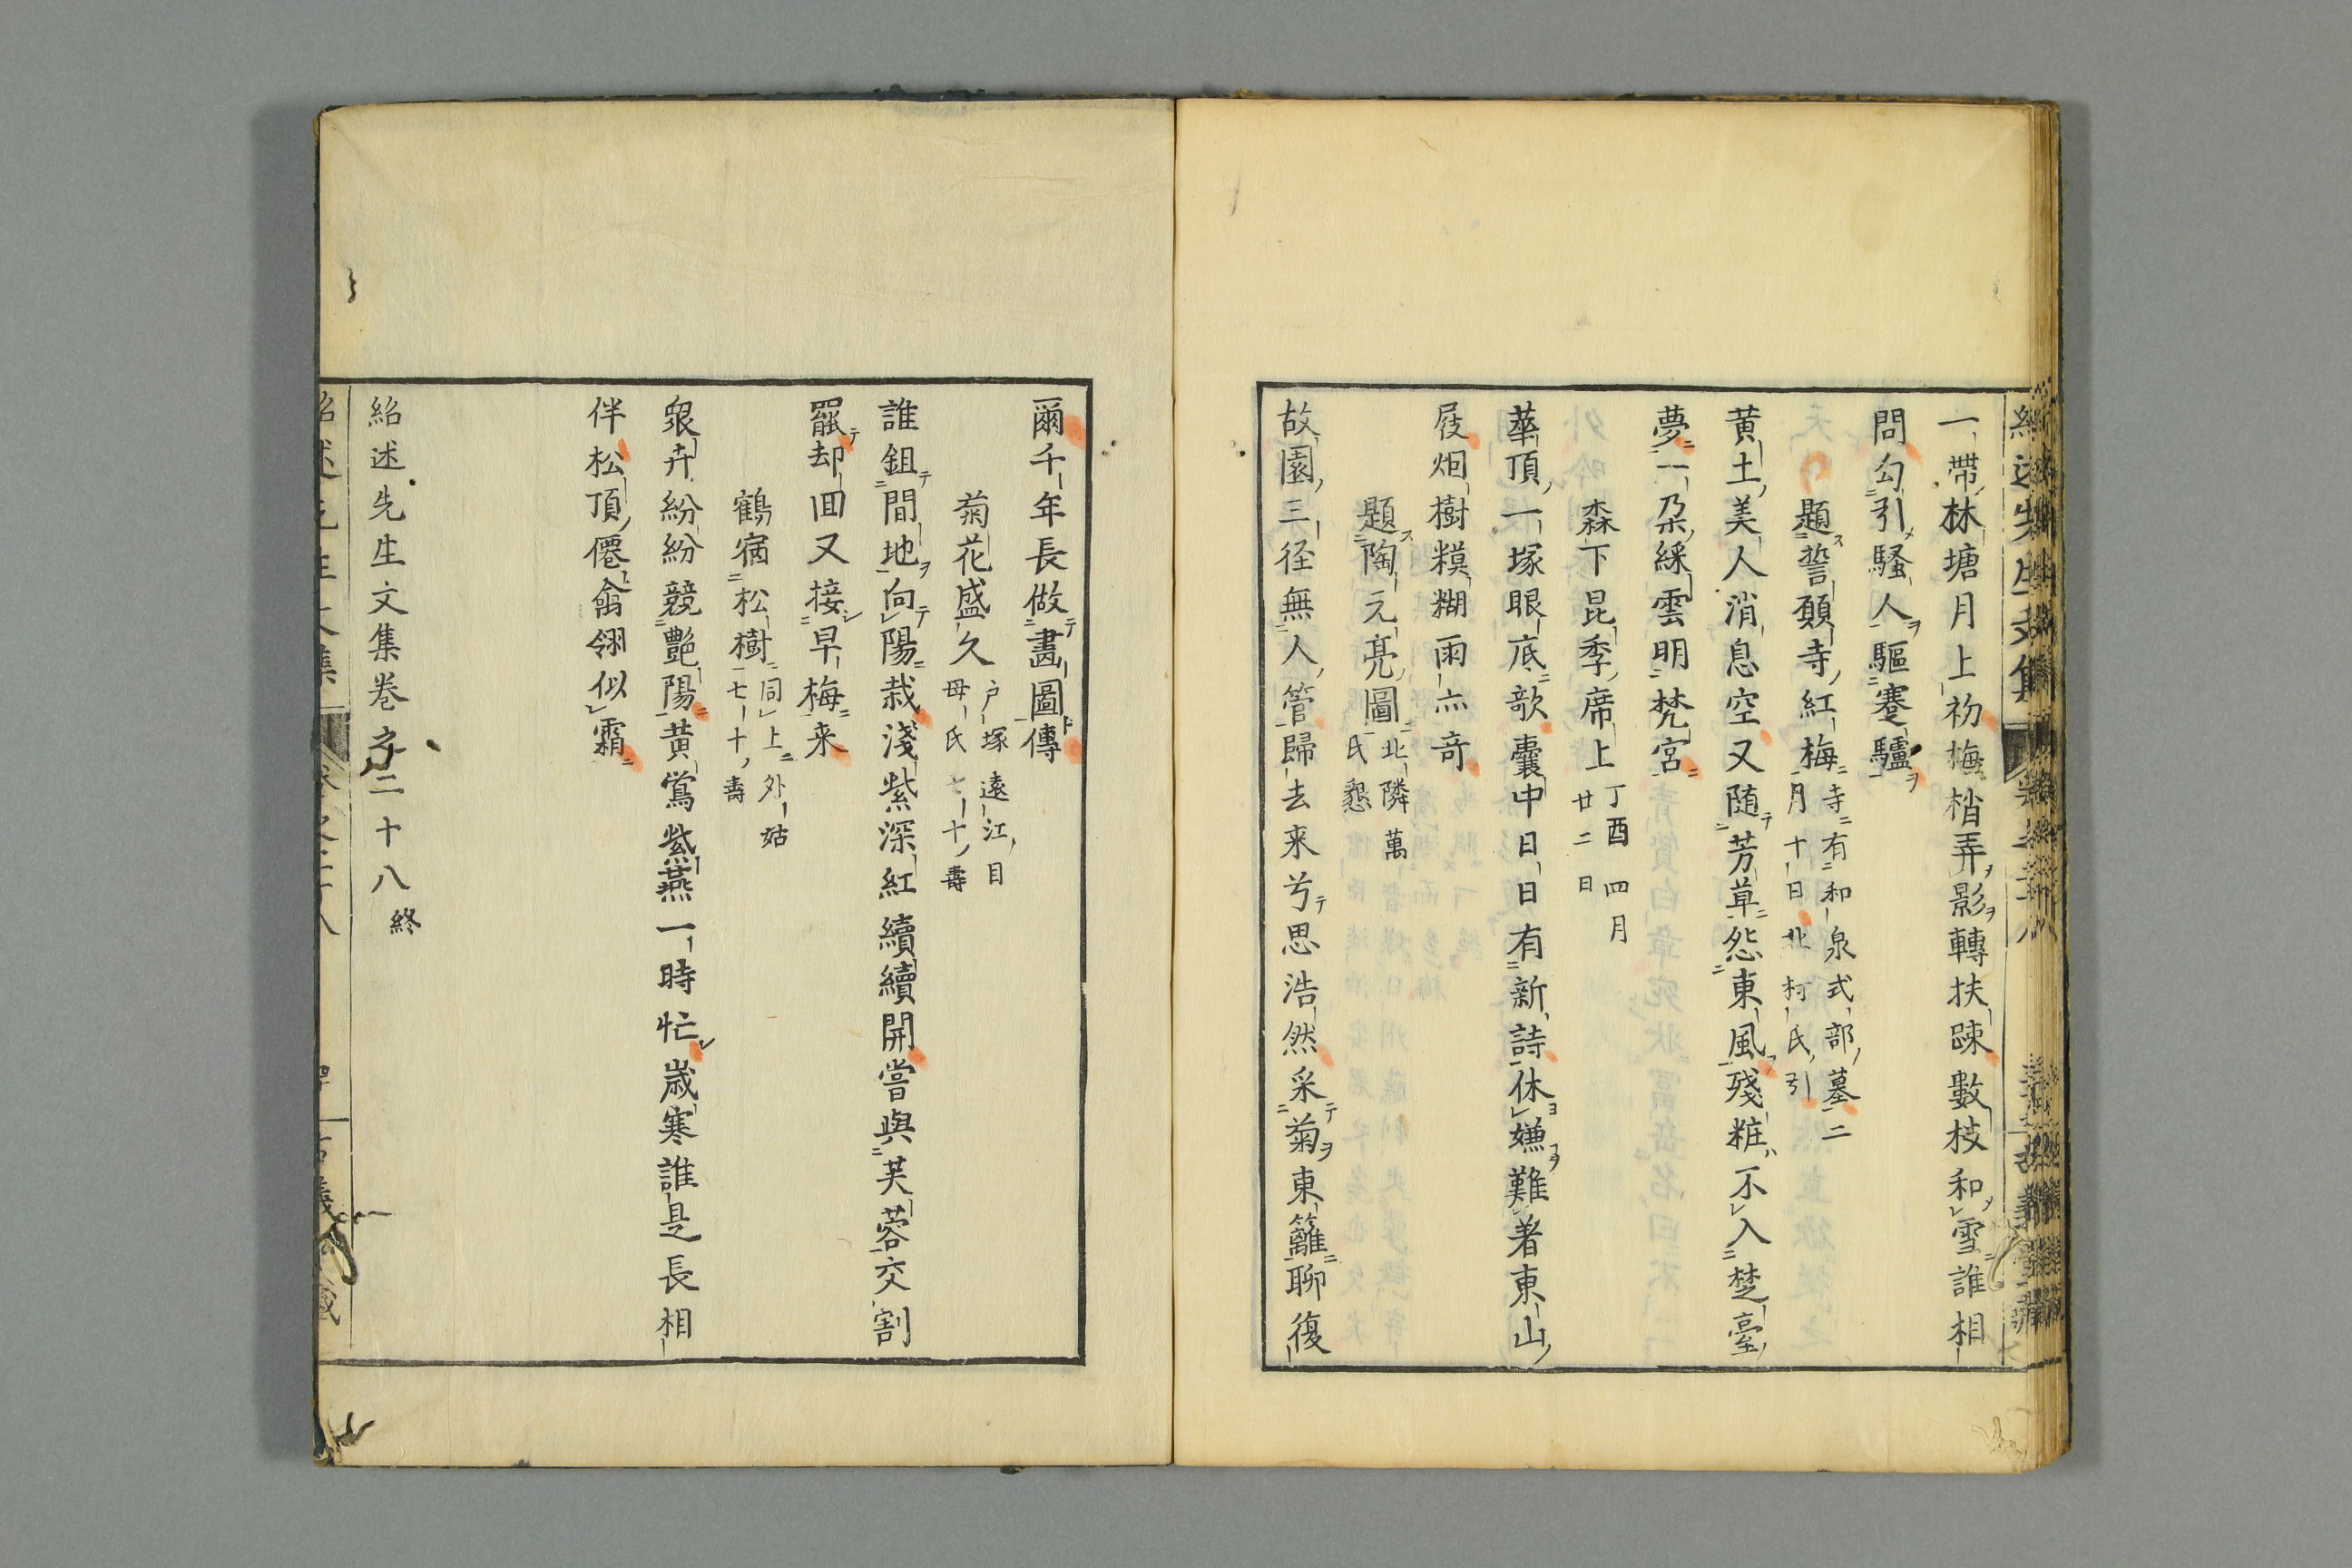 一帶林塘月上初梅梢弄影轉扶踈數枝和雪誰相
問勾引騷人驅蹇驢
題誓願寺紅梅寺有和泉式部墓二
月十日北村氏引
黄土美人消息空又随芳草怨東風殘粧不入楚臺
夢一朶綵雲明梵宮
森下昆季席上丁酉四月
廿二日
華頂一塚眼底歌囊中日日有新詩休嫌難着東山
屐烟樹糢糊雨亦奇
題陶元亮圖北隣萬
氏懇
故園三径無人管歸去来兮思浩然采菊東籬聊復
爾千年長做畫圖傳
菊花盛久戸塚遠江目
母氏七十壽
誰鉏間地向陽栽淺紫深紅續續開嘗與芙蓉交割
罷却回又接早梅来
鶴宿松樹同上外姑
七十壽
衆卉紛紛競艷陽黄鶯紫燕一時忙歳寒誰是長相
伴松頂僊翕翎似霜
紹述先生文集巻之二十八終